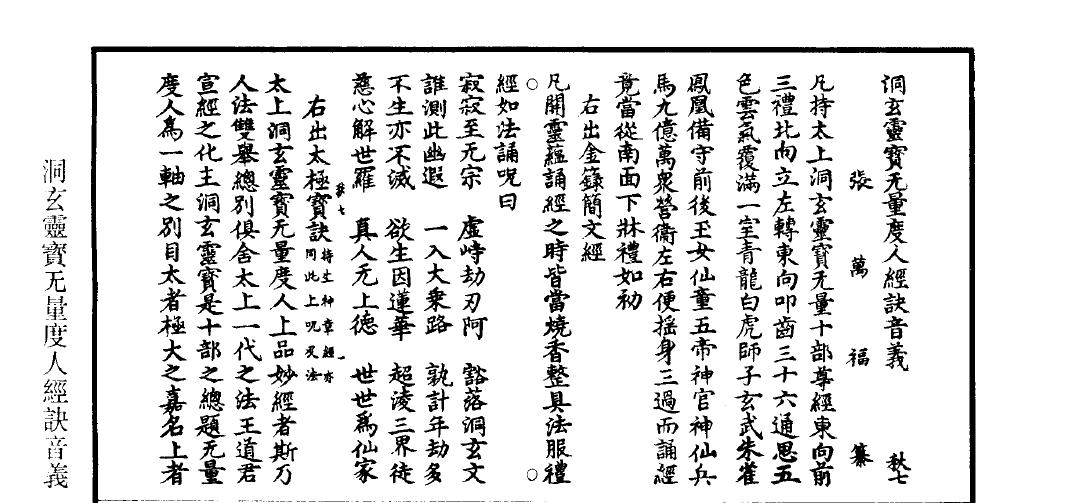 洞玄靈寶无量度人經訣音義 秋七
張萬福纂
凡持太上洞玄靈寶无量十部尊經東向前
三禮北向立左轉東向叩齒三十六通思五
色雲氣覆滿一室青龍白虎師子玄武朱雀
鳳凰備守前後玉女仙童五帝神官神仙兵
馬九億萬衆營衞左右便揺身三過而誦經
竟當從南面下牀禮如初
右出金籙簡文經
凡開靈蘊誦經之時皆當燒香整具法服禮
經如法誦呪曰
寂寂至无宗 虛峙劫刃阿 豁落洞玄文
誰測此幽遐 一入大乘路 孰計年劫多
不生亦不滅 欲生因蓮華 超淩三界徒
慈心解世羅 真人无上德 世世爲仙家
右出太極寶訣持生神章經亦同此上呪及法
太上洞玄靈寶无量度人上品妙經者斯乃
人法雙舉總別俱舍太上一代之法王道君
宣經之化主洞玄靈寶是十部之總題无量
度人爲一軸之別目太者極大之嘉名上者
洞玄靈寶无量度人經訣音義